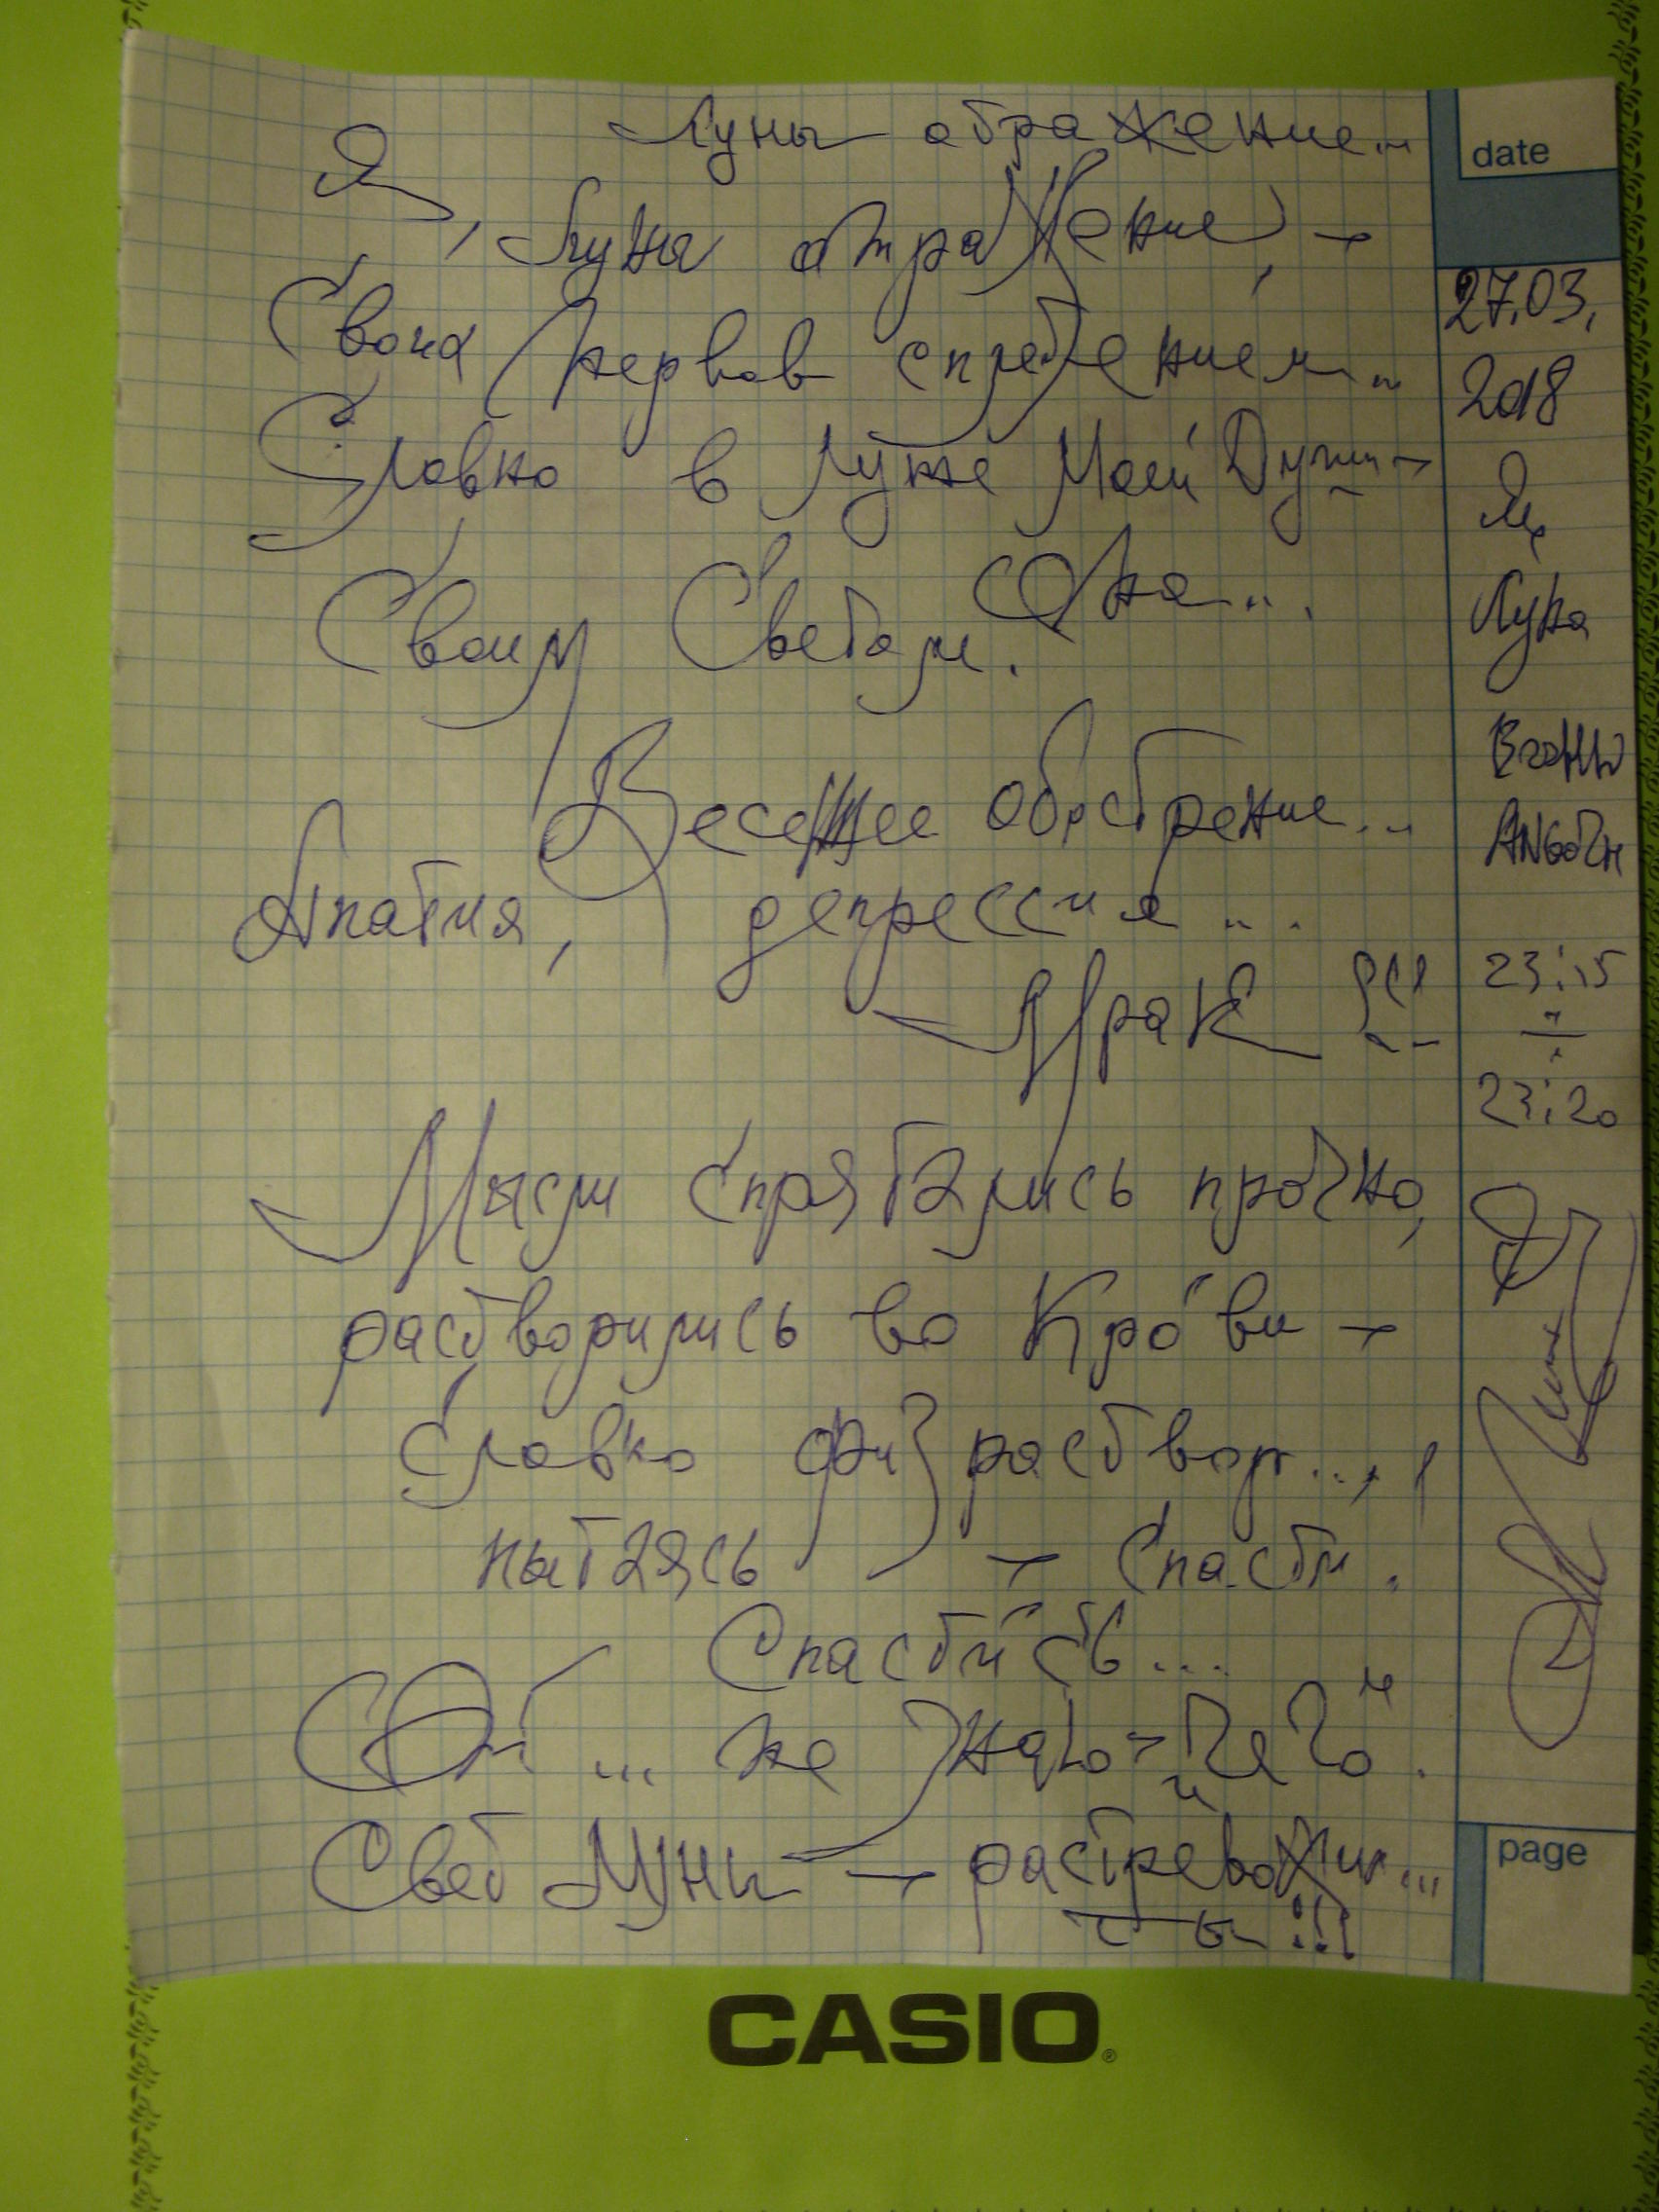 Луны отражение...
Я, Луны отражение, –
Своих нервов сплетением...
Словно в луже Моей Души –
Она...
Своим Светом.
Весеннее обострение...
Апатия, депрессия...
Мрак !!!
Мысли спрятались прочно,
растворились во Кро́ви –
Словно физраствор...,
пытаясь – Спасти.
Спасти́сь...
От ... не знаю – "чего".
Свет Луны – растревожил...
date
27.03.
2018
Я,
Луна
23:15
÷
23:20
page
CASIO